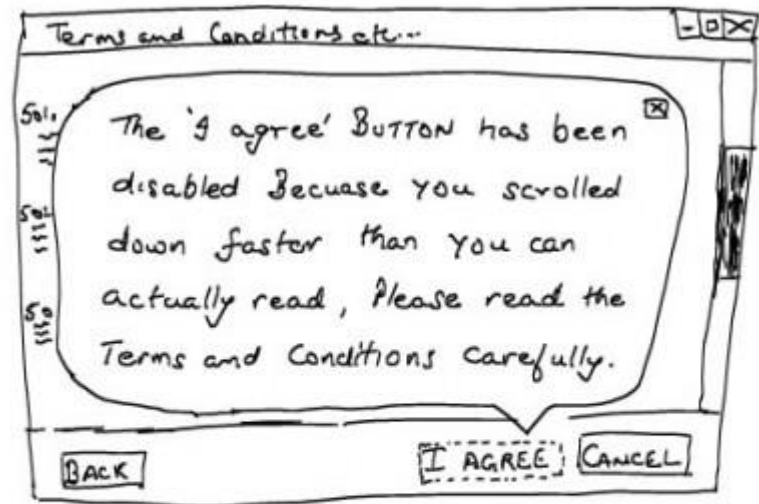 Terms and Conditions etc...
The 'I agree' BUTTON has been
disabled Becuase you scrolled
down faster than you can
actually read, Please read the
Terms and Conditions carefully.
BACK
I AGREE
CANCEL